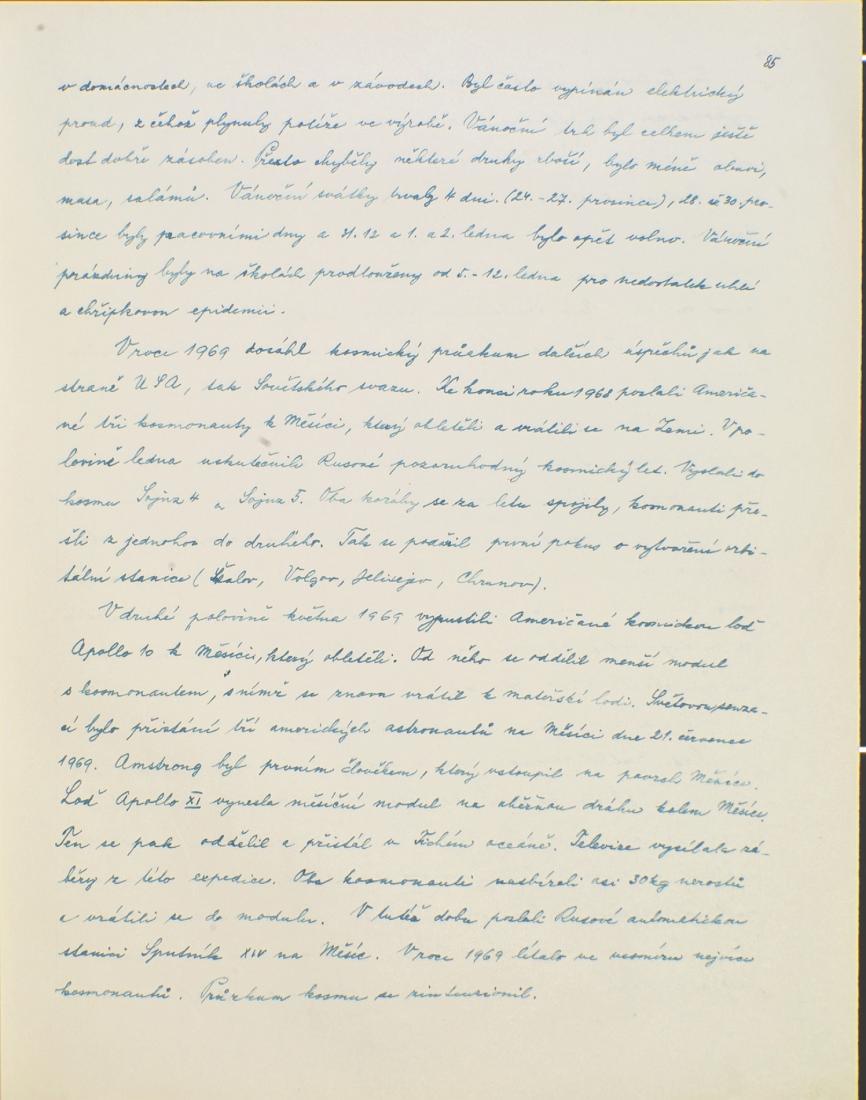 85
v domácnostech, ve školách a v závodech. Byl často vypínán elektrický
proud, z čehož plynuly potíže ve výrobě. Vánoční trh byl celkem ještě
dost dobře zásoben. Přesto chyběly některé druhy zboží, bylo méně obuvi,
masa, salámů. Vánoční svátky trvaly 4 dni. (24.-27. prosince), 28. až 30. pro-
since byly pracovními dny a 31.12 a 1. a 2. ledna bylo opět volno. Vánoční
prázdniny byly na školách prodlouženy od 5.-12. ledna pro nedostatek uhlí
a chřipkovou epidemii.
V roce 1969 dosáhl kosmický průzkum dalších úspěchů jak na
straně USA, tak Sovětského svazu. Ke konci roku 1968 poslali Američa-
né tři kosmonauty k Měsíci, který obletěli a vrátili se na Zemi. V po-
lovině ledna uskutečnili Rusové pozoruhodný kosmický let. Vyslali do
kosmu Sojuz 4 a Sojuz 5. Oba koráby se za letu spojily, kosmonauti pře-
šli z jednoho do druhého. Tak se podařil první pokus o vytvoření orbi-
tální stanice (Šalov, Volgov, Jelisejev, Chrunov).
V druhé polovině května 1969 vypustili Američané kosmickou loď
Apollo 10 k Měsíci, který obletěli. Od něho se oddělil menší modul
s kosmonautem, s nímž se znova vrátil k mateřské lodi. Světovou senza-
cí bylo přistání tří amerických astronautů na Měsíci dne 21. července
1969. Amstrong byl prvním člověkem, který vstoupil na povrch Měsíce.
Loď Apollo XI vynesla měsíční modul na oběžnou dráhu kolem Měsíce.
Ten se pak oddělil a přistál v Tichém oceáně. Televize vysílala zá-
běry z této expedice. Oba kosmonauti nasbírali asi 30 kg nerostů
a vrátili se do modulu. V tutéž dobu poslali Rusové automatickou
stanici Sputnik XIV na Měsíc. V roce 1969 létalo ve vesmíru nejvíce
kosmonautů. Průzkum kosmu se zintenzivnil.